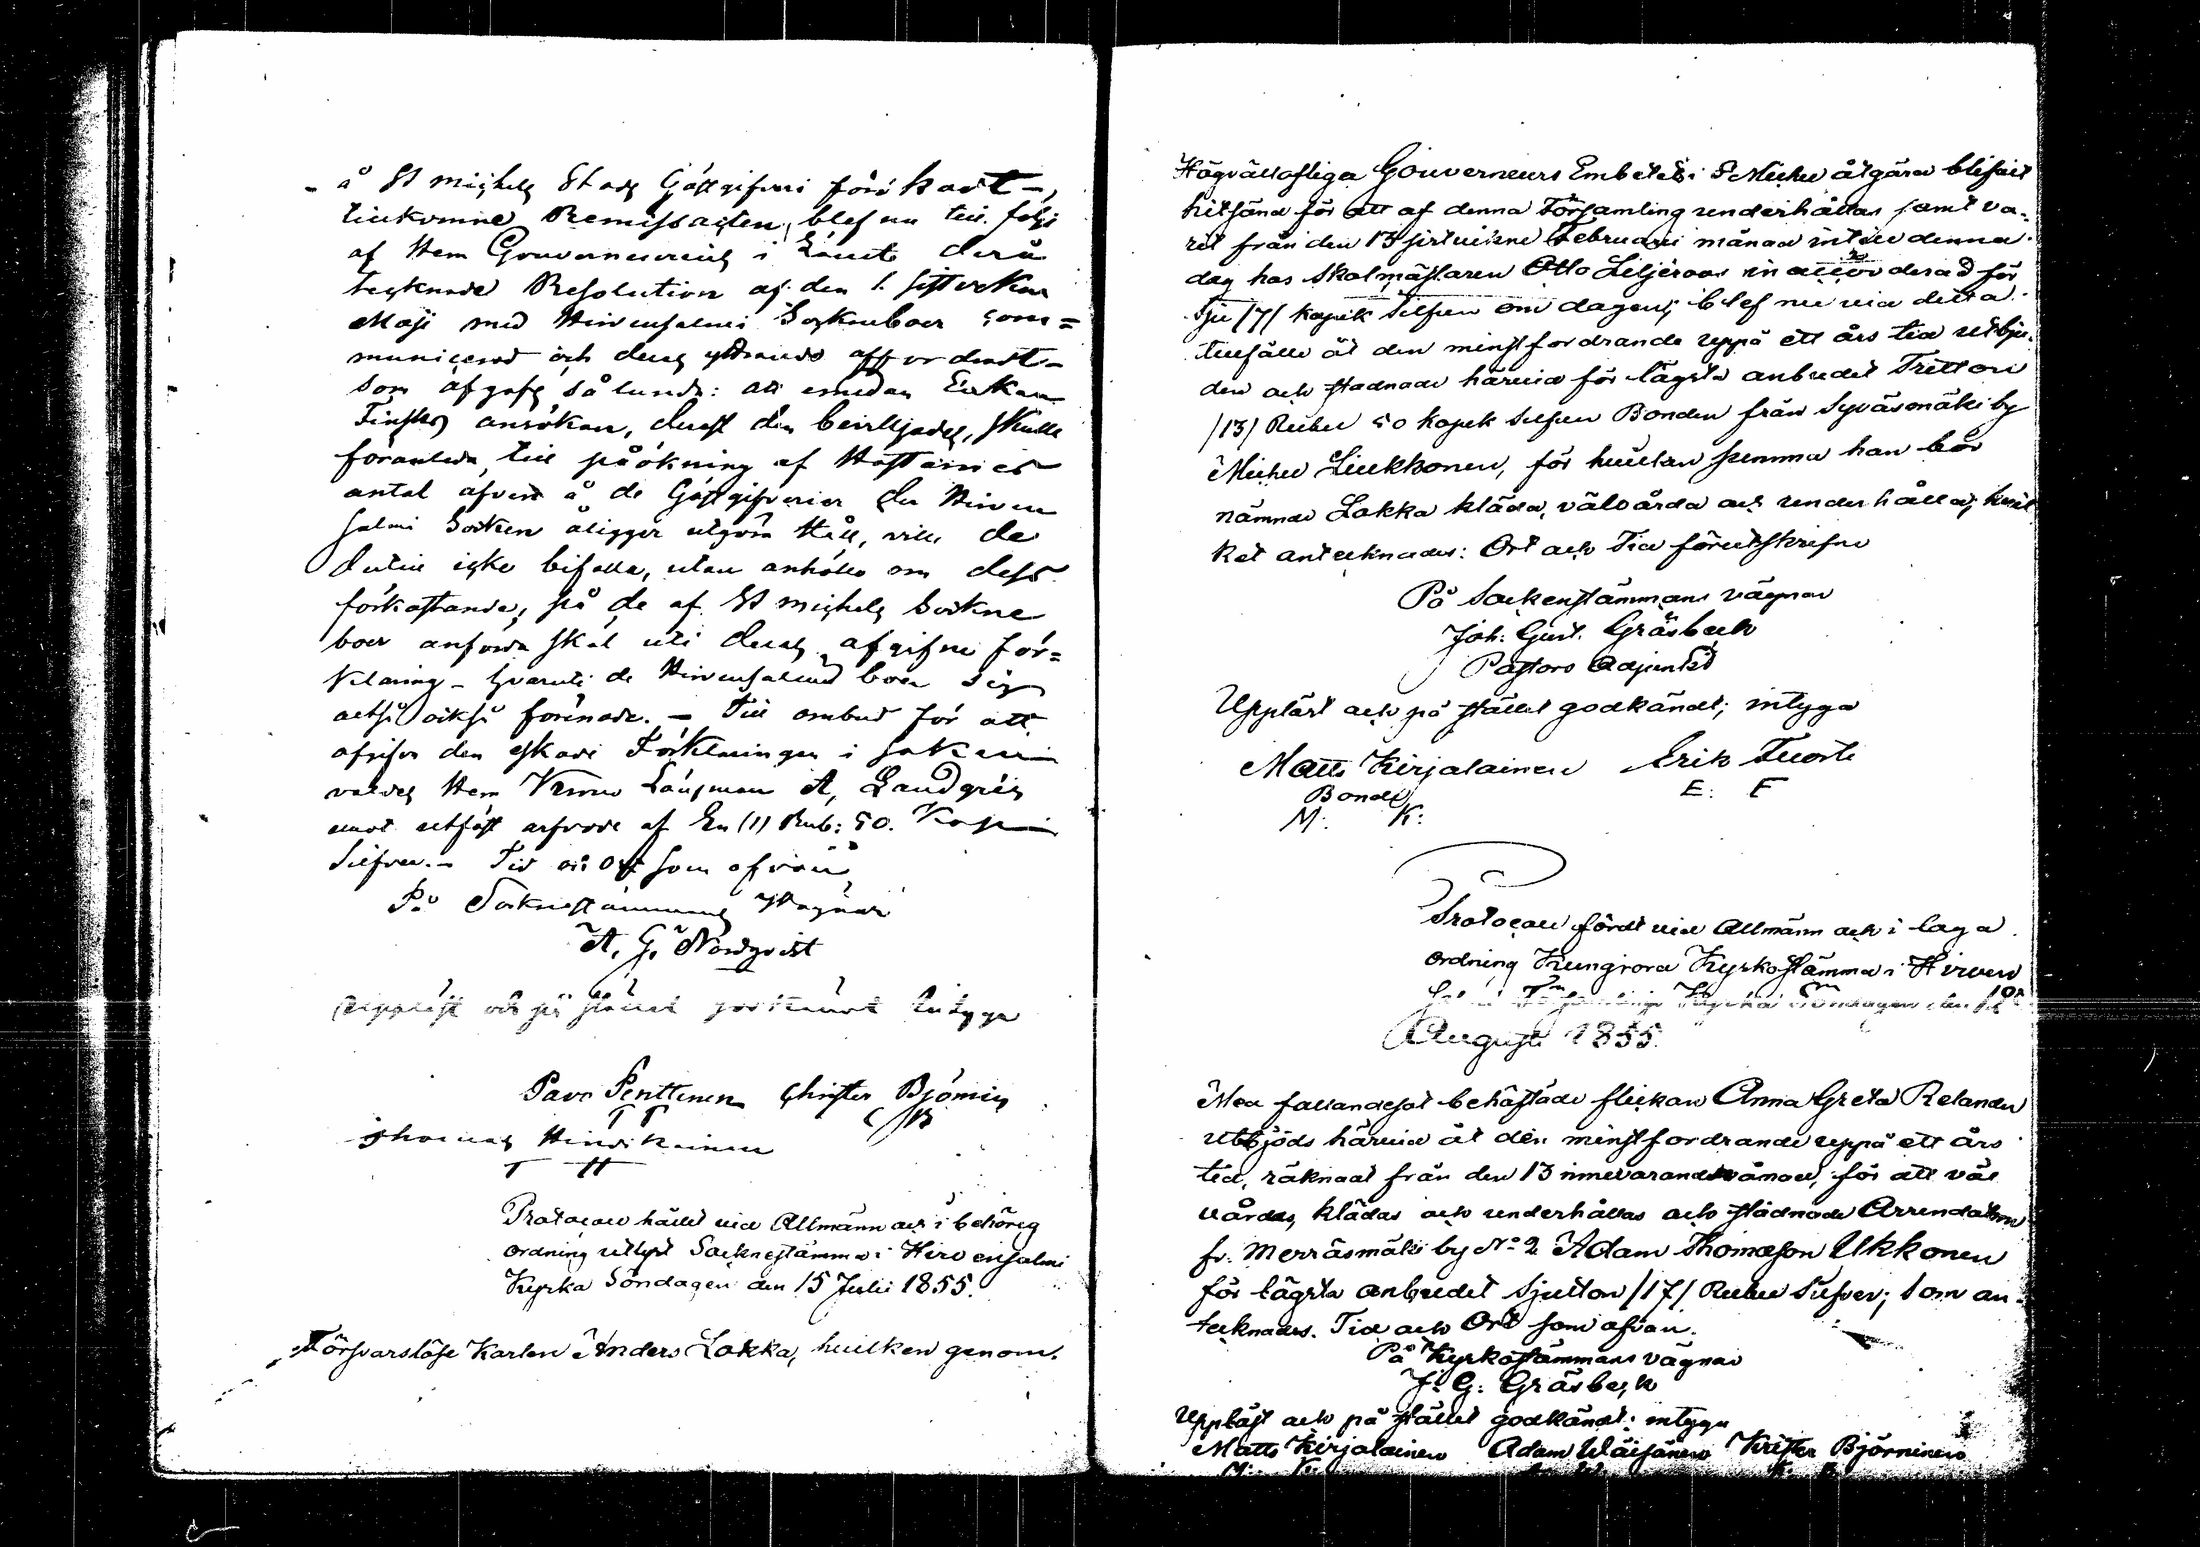 å St Michels Stads Gästgifveri förökadt -,
tillkomne Remissacten, blef nu till följe
af Herr Gouverneurens i Länets derå
tecknade Resolution af den 1 sistvekne
Maji med Hirvensalmi Socknboer com=
municerad och deras yttrande affordradt -
som afgafs sålunda: att emedan Enkan
ansökan, derest den beviljades, skulle
föranleda till påökning af Hästarnes
antal äfven å de Gästgifverier der Hirven
salmi Socken åligger utgöra Håll, ville de
dertill icke bifalla, utan anhålla om dess
förkastande, på de af St Michels Sockne
boer anförda skäl uti deras afgifne för=
klaring - hvaruti de Hirvensalmi boer sig
altså också förenade. - Till ombud för att
afgifva den äskade Förklaringen i saken
valdes Herr Länsman A, Landgrén
emot utfäst arfvode af En (1) Rub: 50. Kop
Silfver. - Tid och Ort som ofvan,
På Sockenstämmans Vägnar
A, G, Nordqvist
Uppläst och på stället godkändt intyga
Pavo Penttinen Christer Björnin
T T C B
Thomas Hindikainen
T H
Protocoll hållet vid Allmänn och i behörig
ordning utlyst Socknestämma i Hirvensalmi
Kyrka Söndagen den 15 Julii 1855.
Försvarslöse Karlen Anders Lokka, hvilken genom
Högvällofliga Gouverneurs Embetets i St Michel åtgärd blifvit
hitsänd för att af denna Församling underhållas samt va-
rit från den 13 sistvikne Februarii månad intill denna
dag hos Skolmästaren Otto Liljeroos in accorderad för
Sju /7/ Kopek Silfver om dagen; blef nu vid detta
tillfälle åt den minstfordrande uppå ett års tid utbju-
den och stadnade härvid för lägsta anbudet Tretton
/13/ Rubel 50 Kopek Silfver Bonden från Syväsmäki by
Michel Liukkonen, för hvilken summa han bör
nämnde Lokka kläda, välvårda och underhålla; hvil-
ket antecknades: Ort och Tid förutskrifne
På Sockenstämmans vägnar
Joh: Gust. Gråsbeck
Pastors Adjunkt
Uppläst och på stället godkändt; intyga
Matts Kirjalainen Erik Tuorti
Bonde E: T
M: K:
Protocoll fördt vid Allmänn och i laga
ordning Kungjord Kyrkostämma i Hirven
salmi Församlings Kyrka Söndagen den 12
Augusti 1855.
Med fallandesot behäftade flickan Anna Greta Relander
utbjöds härvid åt den minstfordrande uppå ett års
tid, räknadt från den 13 innevarande månad, för att väl
vårdas, klädas och underhållas och stadnade Arrendatorn
fr. Merräsmäki by No 2 Adam Thomasson Ukkonen
för lägsta anbudet Sjutton /17/ Rubel Silfver; som an-
tecknades. Tid och Ort som ofvan.
På Kyrkostämmans vägnar
J: G: Gråsbeck
Uppläst och på stället godkändt; intyga
Matts Kirjalainen Adam Wäisänen Krister Björninen
M: K: